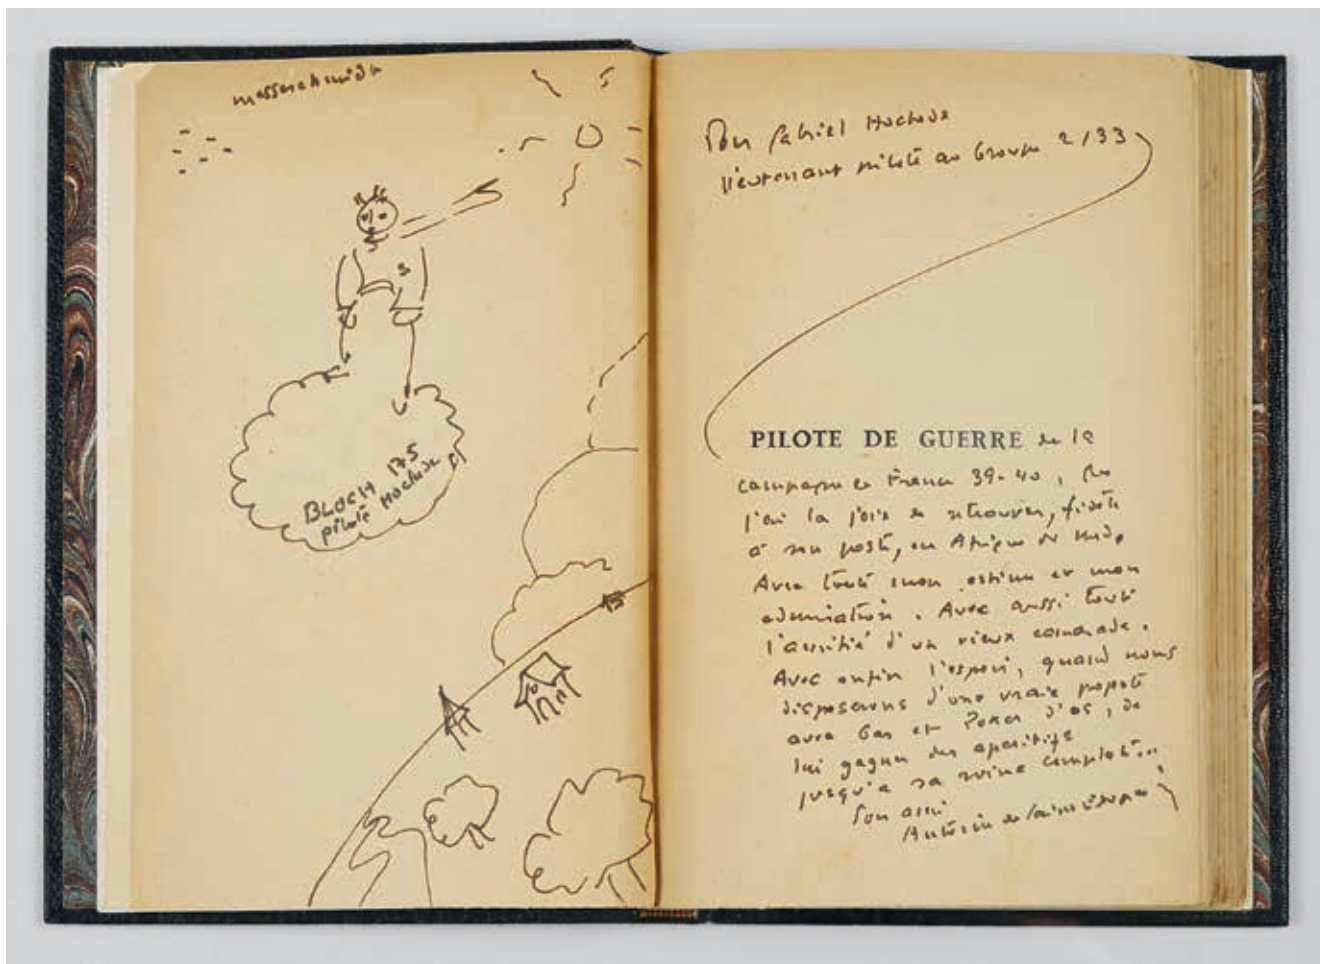 messerschmidt
BLOCH 175
pilote Hochede
Pour Gabriel Hochede
lieutenant pilote au Groupe 2/33
PILOTE DE GUERRE de la
campagne de France 39-40, que
j'ai la joie de retrouver, fidèle
à son poste, en Afrique du Nord.
Avec toute mon estime et mon
admiration. Avec aussi toute
l'amitié d'un vieux camarade.
Avec enfin l'espoir, quand nous
disposerons d'une vraie popote
avec bar et Poker d'as, de
lui gagner des aperitifs
jusqu'a sa ruine complete...
Son ami
Antoine de Saint Exupery